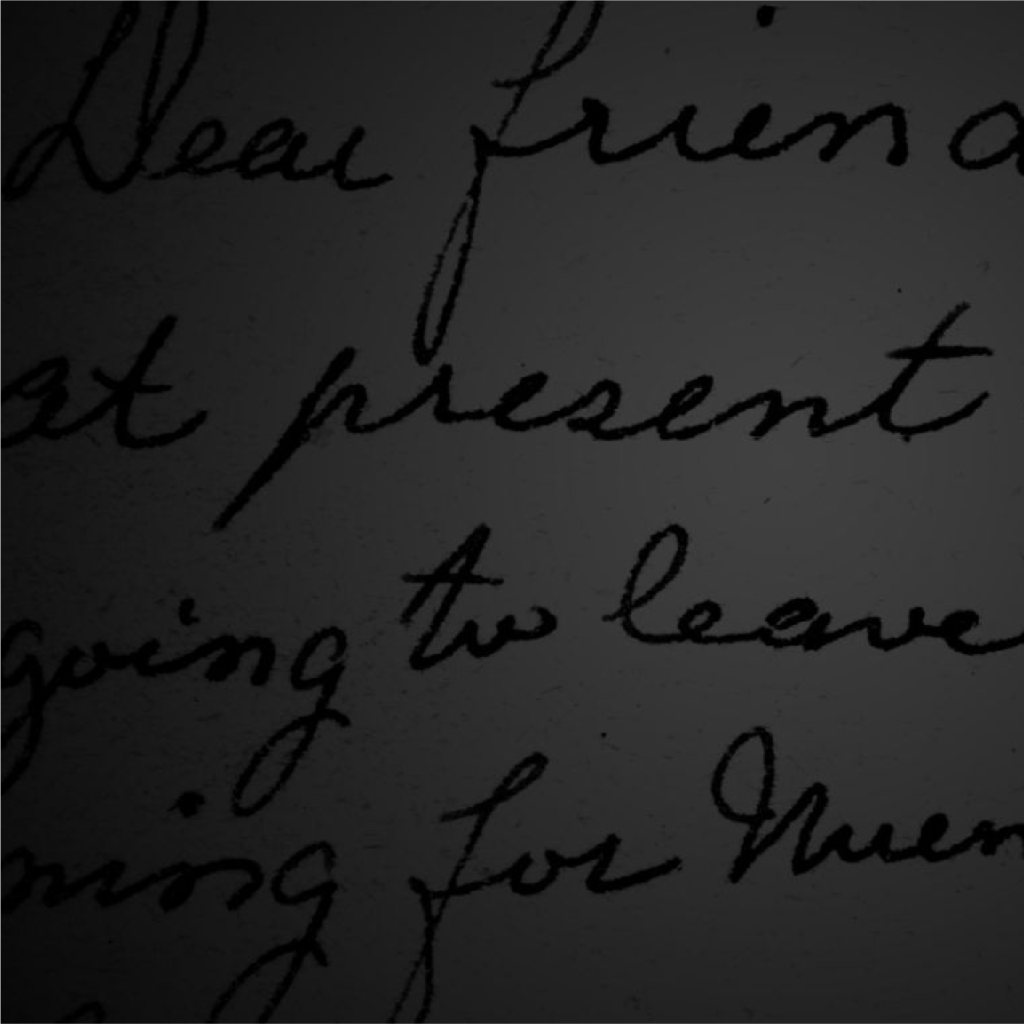 Dear friend
at present
going to leave
ning for Nuen